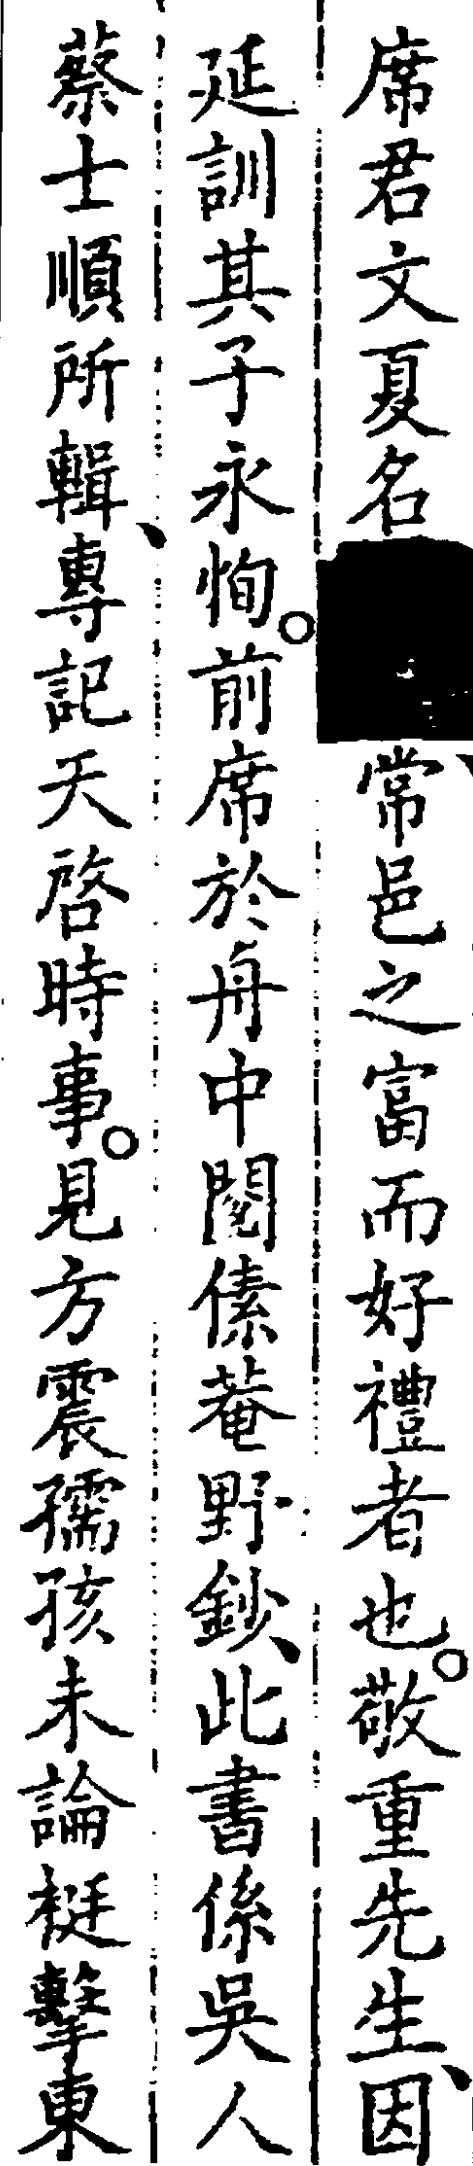 席君文夏名常邑之富而好禮者也。敬重先生、因
延訓其子永恂。前席於舟中閱傃菴野鈔、此書係吳人
蔡士順所輯、專記天啓時事。見方震孺孩未論梃擊東